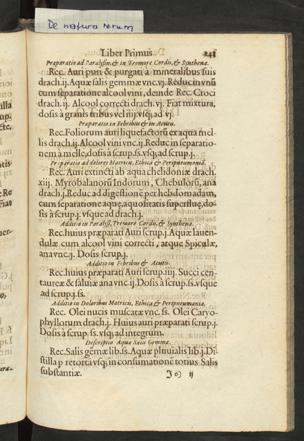 De natura rerum
Liber Primus. 241
Præparatio ad Paralysim, & in Tremore Cordis, & Synthena.
Rec. Auri puri & purgati à mineralibus suis
drach. ij. Aquæ salis gemmæ vnc. vj. Reduc in vnũ
cum separatione alcool vini, deinde Rec. Croci
drach. ij. Alcool correcti drach. vj. Fiat mixtura,
dosis à granis tribus vel iiij. vsq; ad vj.
Præparatio in Febribus & in Acutis.
Rec. Foliorum auri liquefactorũ ex aqua mel-
lis drach. ij. Alcool vini vnc. ij. Reduc in separatio-
nem à melle, dosis à scrup. ss. vsq; ad scrup. j.
Præparatio ad dolores Matricis, Ethica & Peripneumonia.
Rec. Auri extincti ab aqua chelidoniæ drach.
xiij. Myrobalanorũ Indorum, Chebulorũ, ana
drach. j. Reduc ad digestionẽ per hebdomadam,
cum separatione aquæ, aquositatis superfluæ, do-
sis à scrup. j. vsque ad drach. j.
Additio in Paralysi, Tremore Cordis, & Synthena.
Rec. huius præparati Auri scrup. j. Aquæ lauen-
dulæ cum alcool vini correcti, atque Spiculæ,
ana vnc. ij. Dosis scrup. j.
Additio in Febribus & Acutis.
Rec. huius præparati Auri scrup. iiij. Succi cen-
taureæ & saluiæ ana vnc. ij. Dosis à scrup. ss. vsque
ad scrup. j. ss.
Additio in Doloribus Matricis, Ethica & Peripneumonia.
Rec. Olei nucis muscatæ vnc. ss. Olei Caryo-
phyllorum drach. j. Huius auri præparati scrup. j.
Dosis à scrup. ss. vsq; ad integrum.
Descriptio Aquæ Salis Gemmæ.
Rec. Salis gemæ lib. ss. Aquæ pluuialis lib. j. Di-
stilla p retortã vsq; in consumationẽ totius Salis
substantiæ.